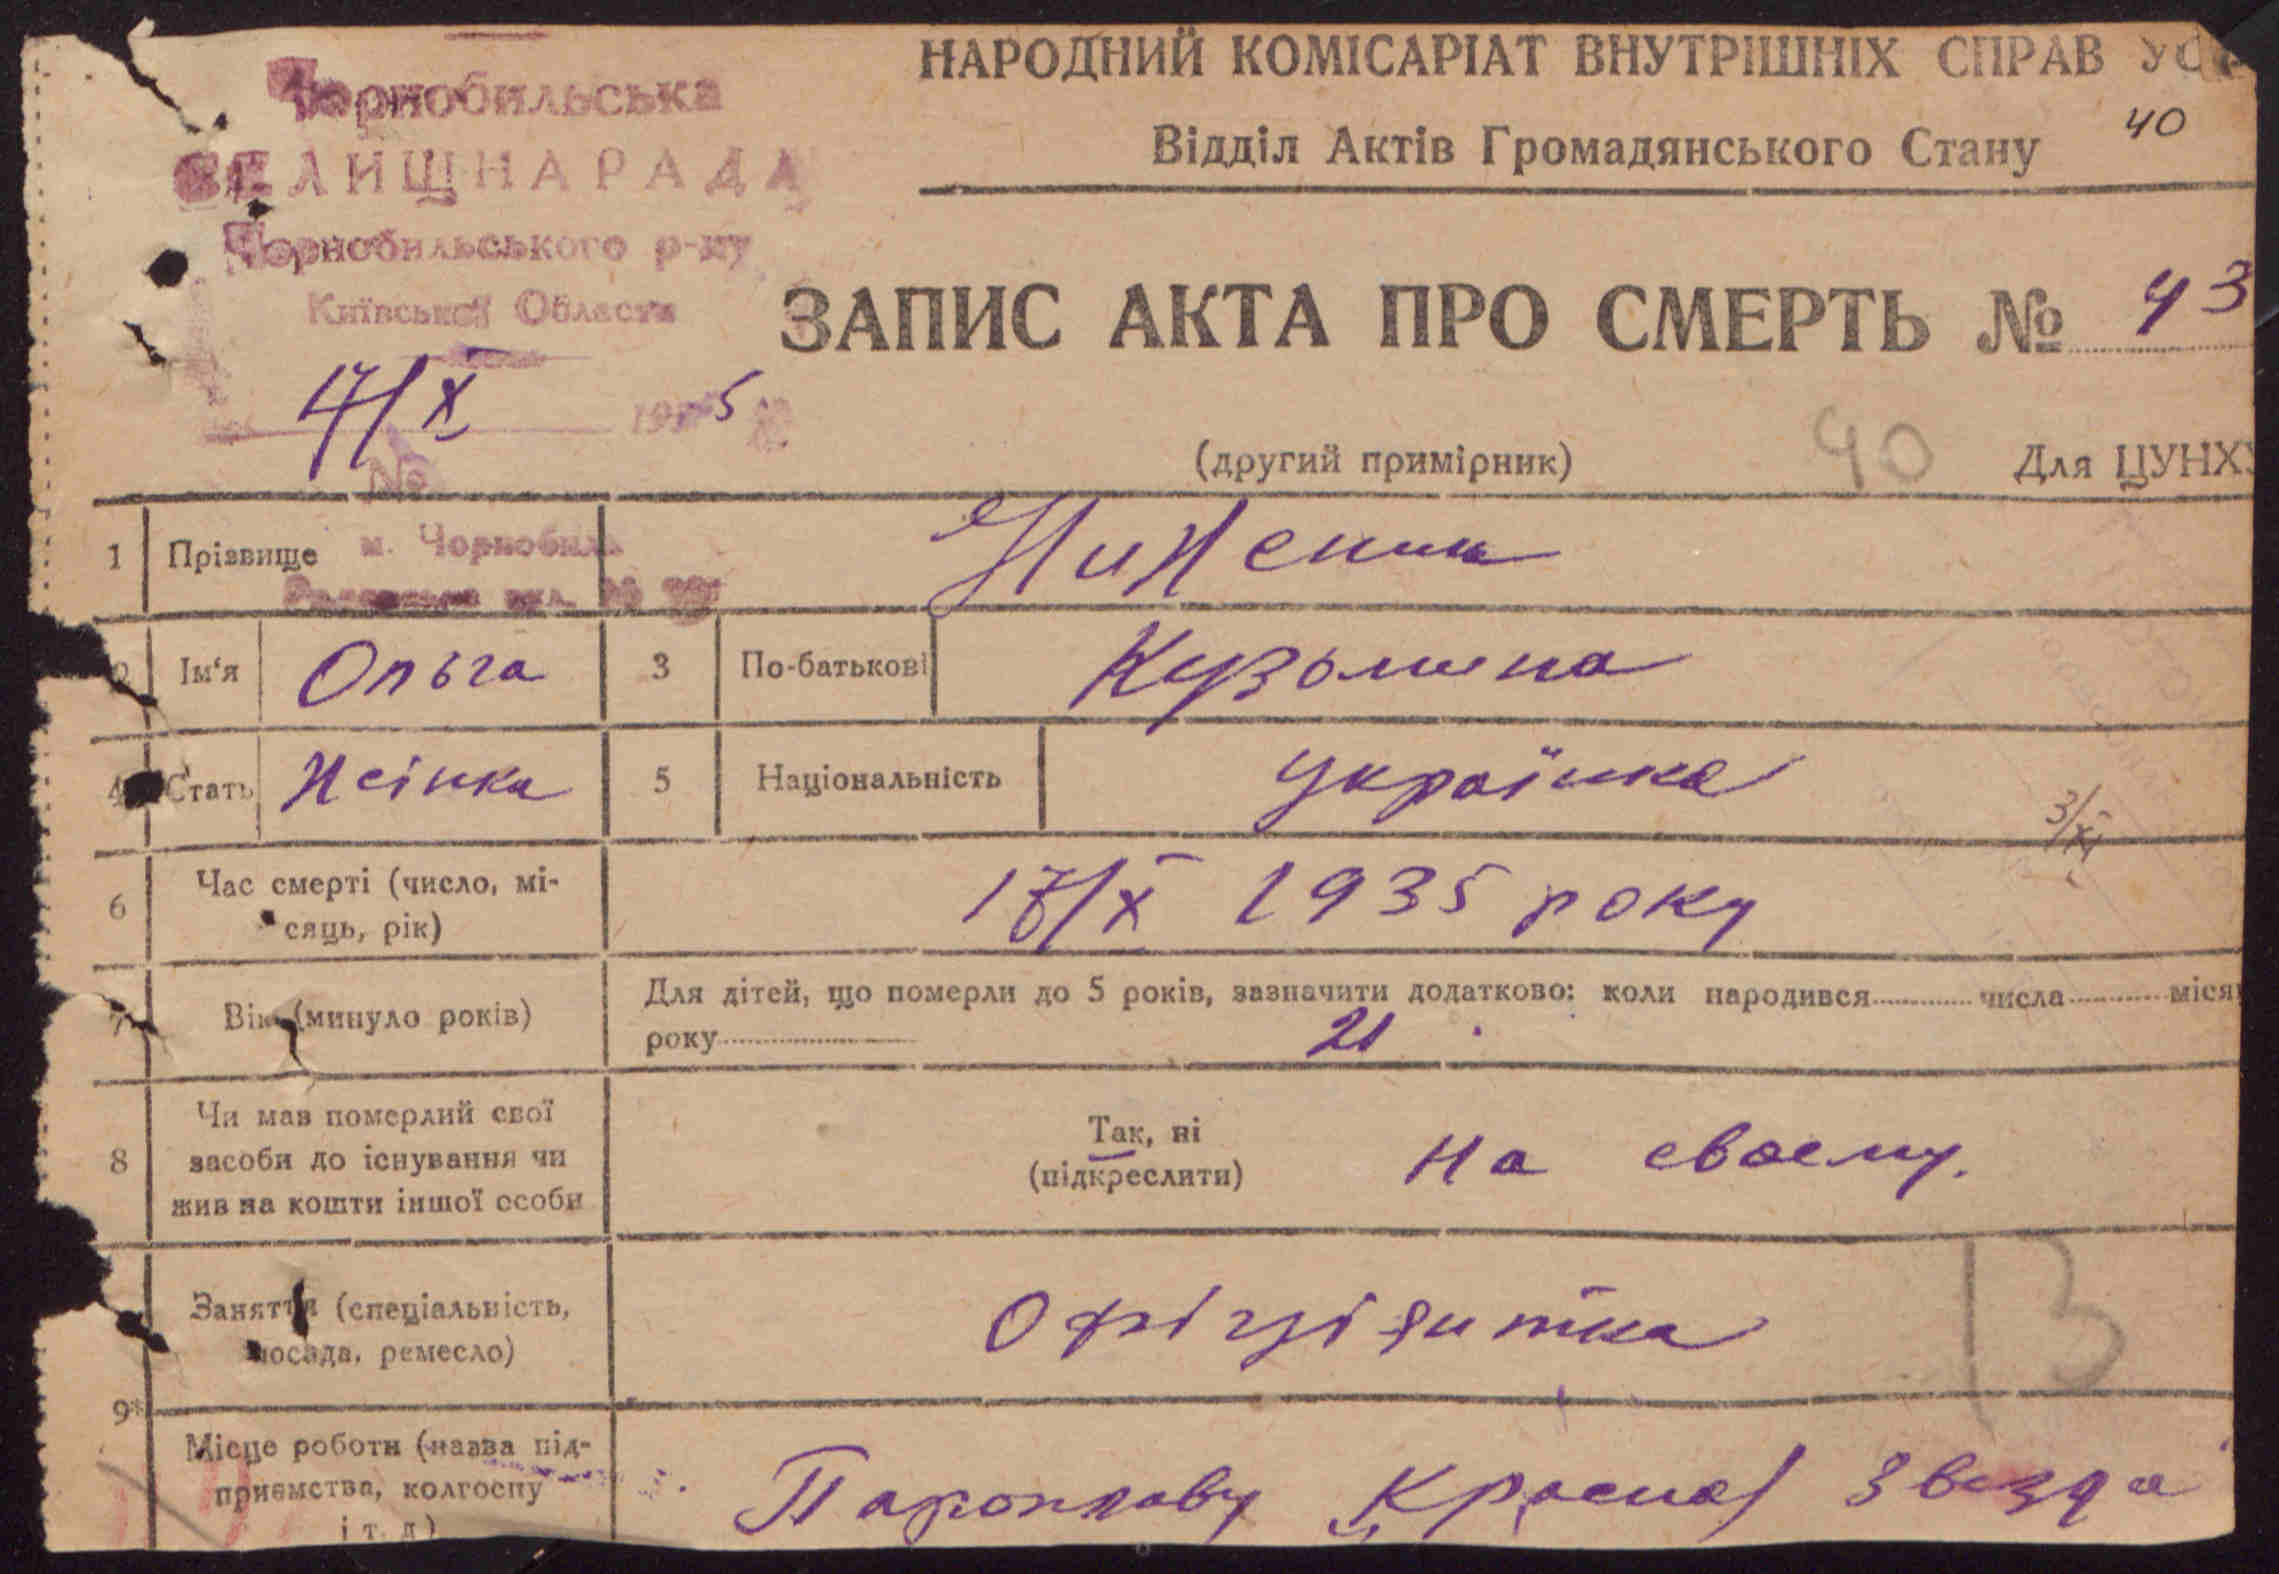 Чорнобильська
СЕЛИЩНА РАДА
Чорнобильського р-ну
Київської Области
17/X 1935
№
м. Чорнобиль
НАРОДНИЙ КОМІСАРІАТ ВНУТРІШНІХ СПРАВ
Відділ Актів Громадянського Стану
40
ЗАПИС АКТА ПРО СМЕРТЬ № 43
(другий примірник) 40 Для ЦУНХУ
1 Прізвище
2 Ім'я Ольга 3 По-батькові Кузьмина
4 Стать Жінка 5 Національність українка
3/XI
6 Час смерті (число, мі-
сяць, рік) 17/X 1935 року
7 Вік (минуло років) Для дітей, що померли до 5 років, зазначити додатково: коли народився числа місяц
року 21
8 Чи мав померлий свої
засоби до існування чи
жив на кошти іншої особи
Так, ні
(підкреслити) На своему.
Заняття (спеціальність,
посада, ремесло) Офіціянтка
13
9*
Місце роботи (назва під-
приємства, колгоспу
і т. д) Пароплаву „Красная Звезда